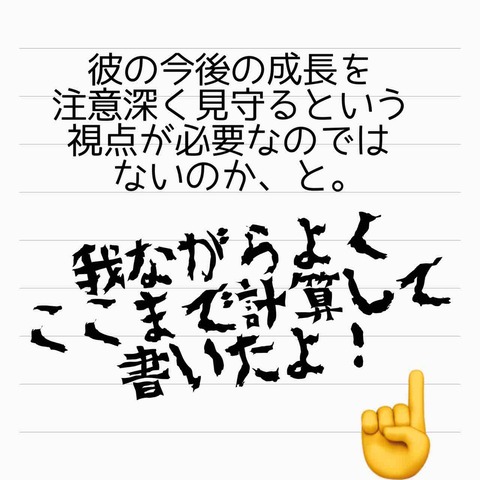 彼の今後の成長を
注意深く見守るという
視点が必要なのでは
ないのか、と。
我ながらよく
ここまで計算して
書いたよ!